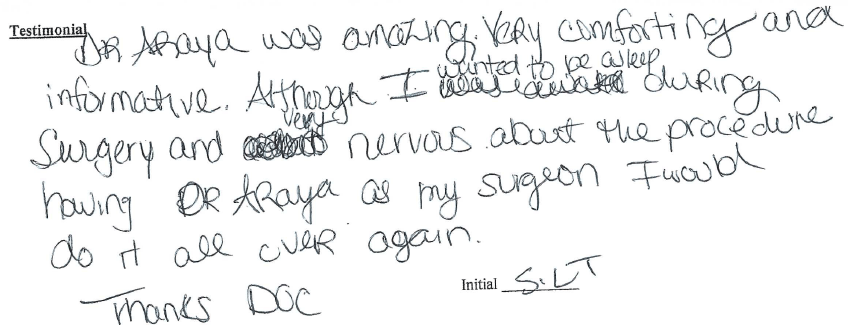 Testimonial
DR ARaya was amazing. Very comforting and
informative. Although I wanted to be asleep during
Surgery and very nervous about the procedure
having DR ARaya as my surgeon I would
do it all over again.
Thanks DOC
Initial S.LT